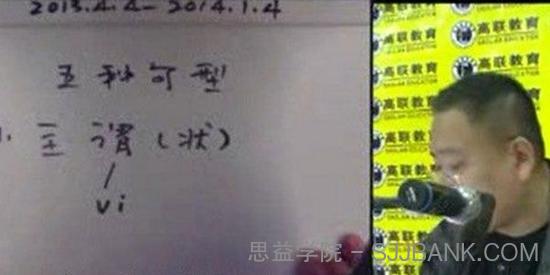 2013.4.4-2014.1.4
五种句型
1. 主 谓(状)
vi
高联教育
GAOLIAN EDUCATION
思益学院 - SJJBANK.COM